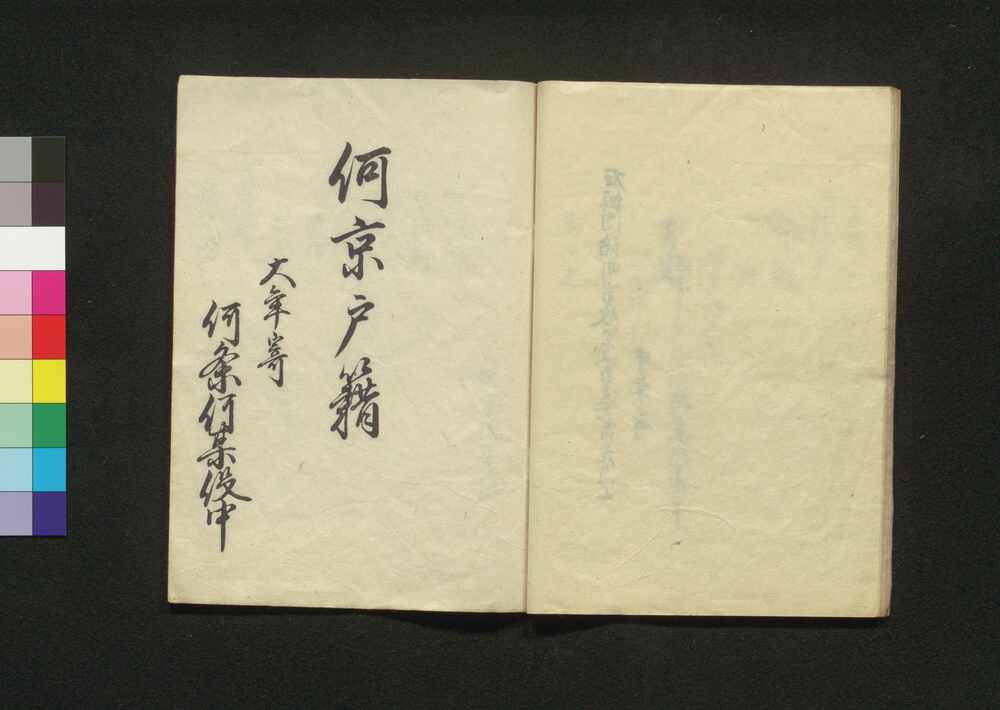 何京戸籍
大年寄
何条何某役中